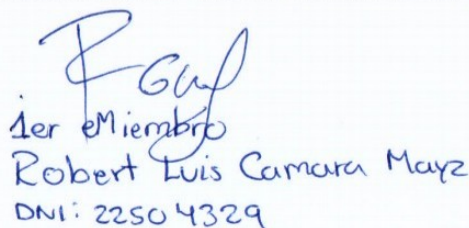 1er Miembro
Robert Luis Camara Mayz
DNI: 22504329